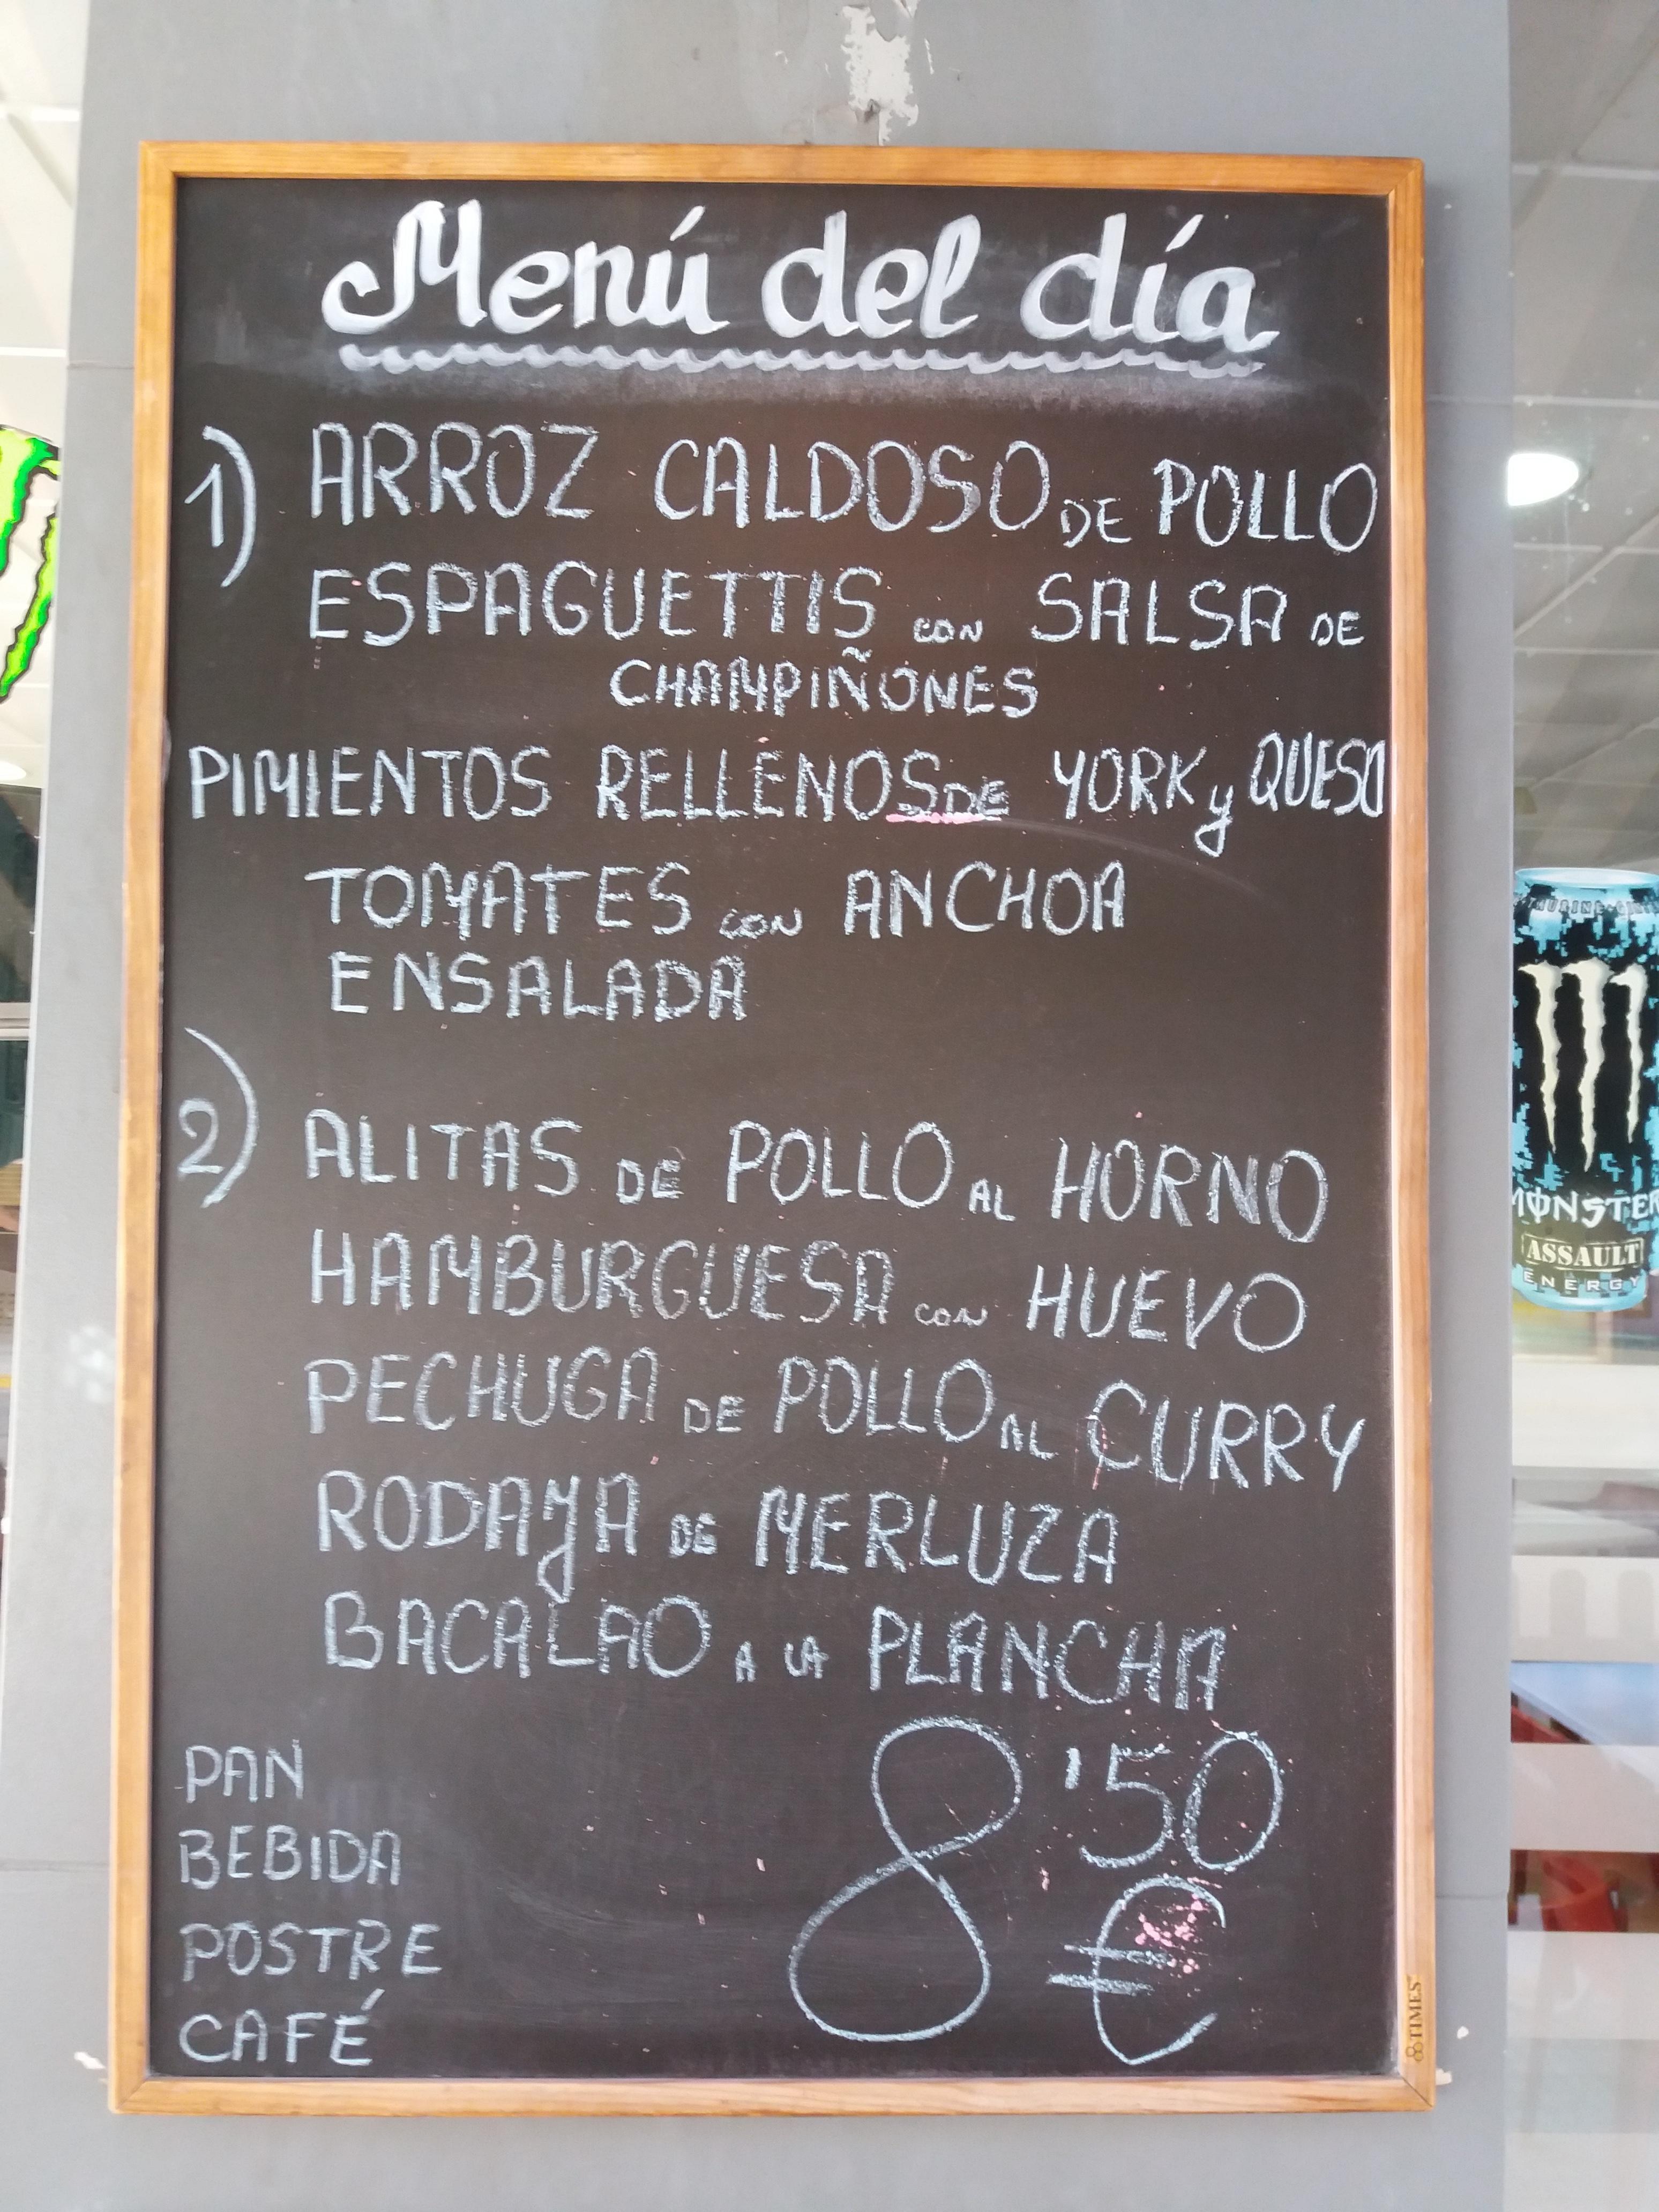 Menú del día
1) ARROZ CALDOSO DE POLLO
ESPAGUETTIS CON SALSA DE
CHAMPIÑONES
PIMIENTOS RELLENOS DE YORK y QUESO
TOMATES CON ANCHOA
ENSALADA
2) ALITAS DE POLLO AL HORNO
HAMBURGUESA CON HUEVO
PECHUGA DE POLLO AL CURRY
RODAJA DE MERLUZA
BACALAO A LA PLANCHA
PAN
BEBIDA
POSTRE
CAFÉ
8'50
€
TIMES
MONSTER
ASSAULT
ENERGY